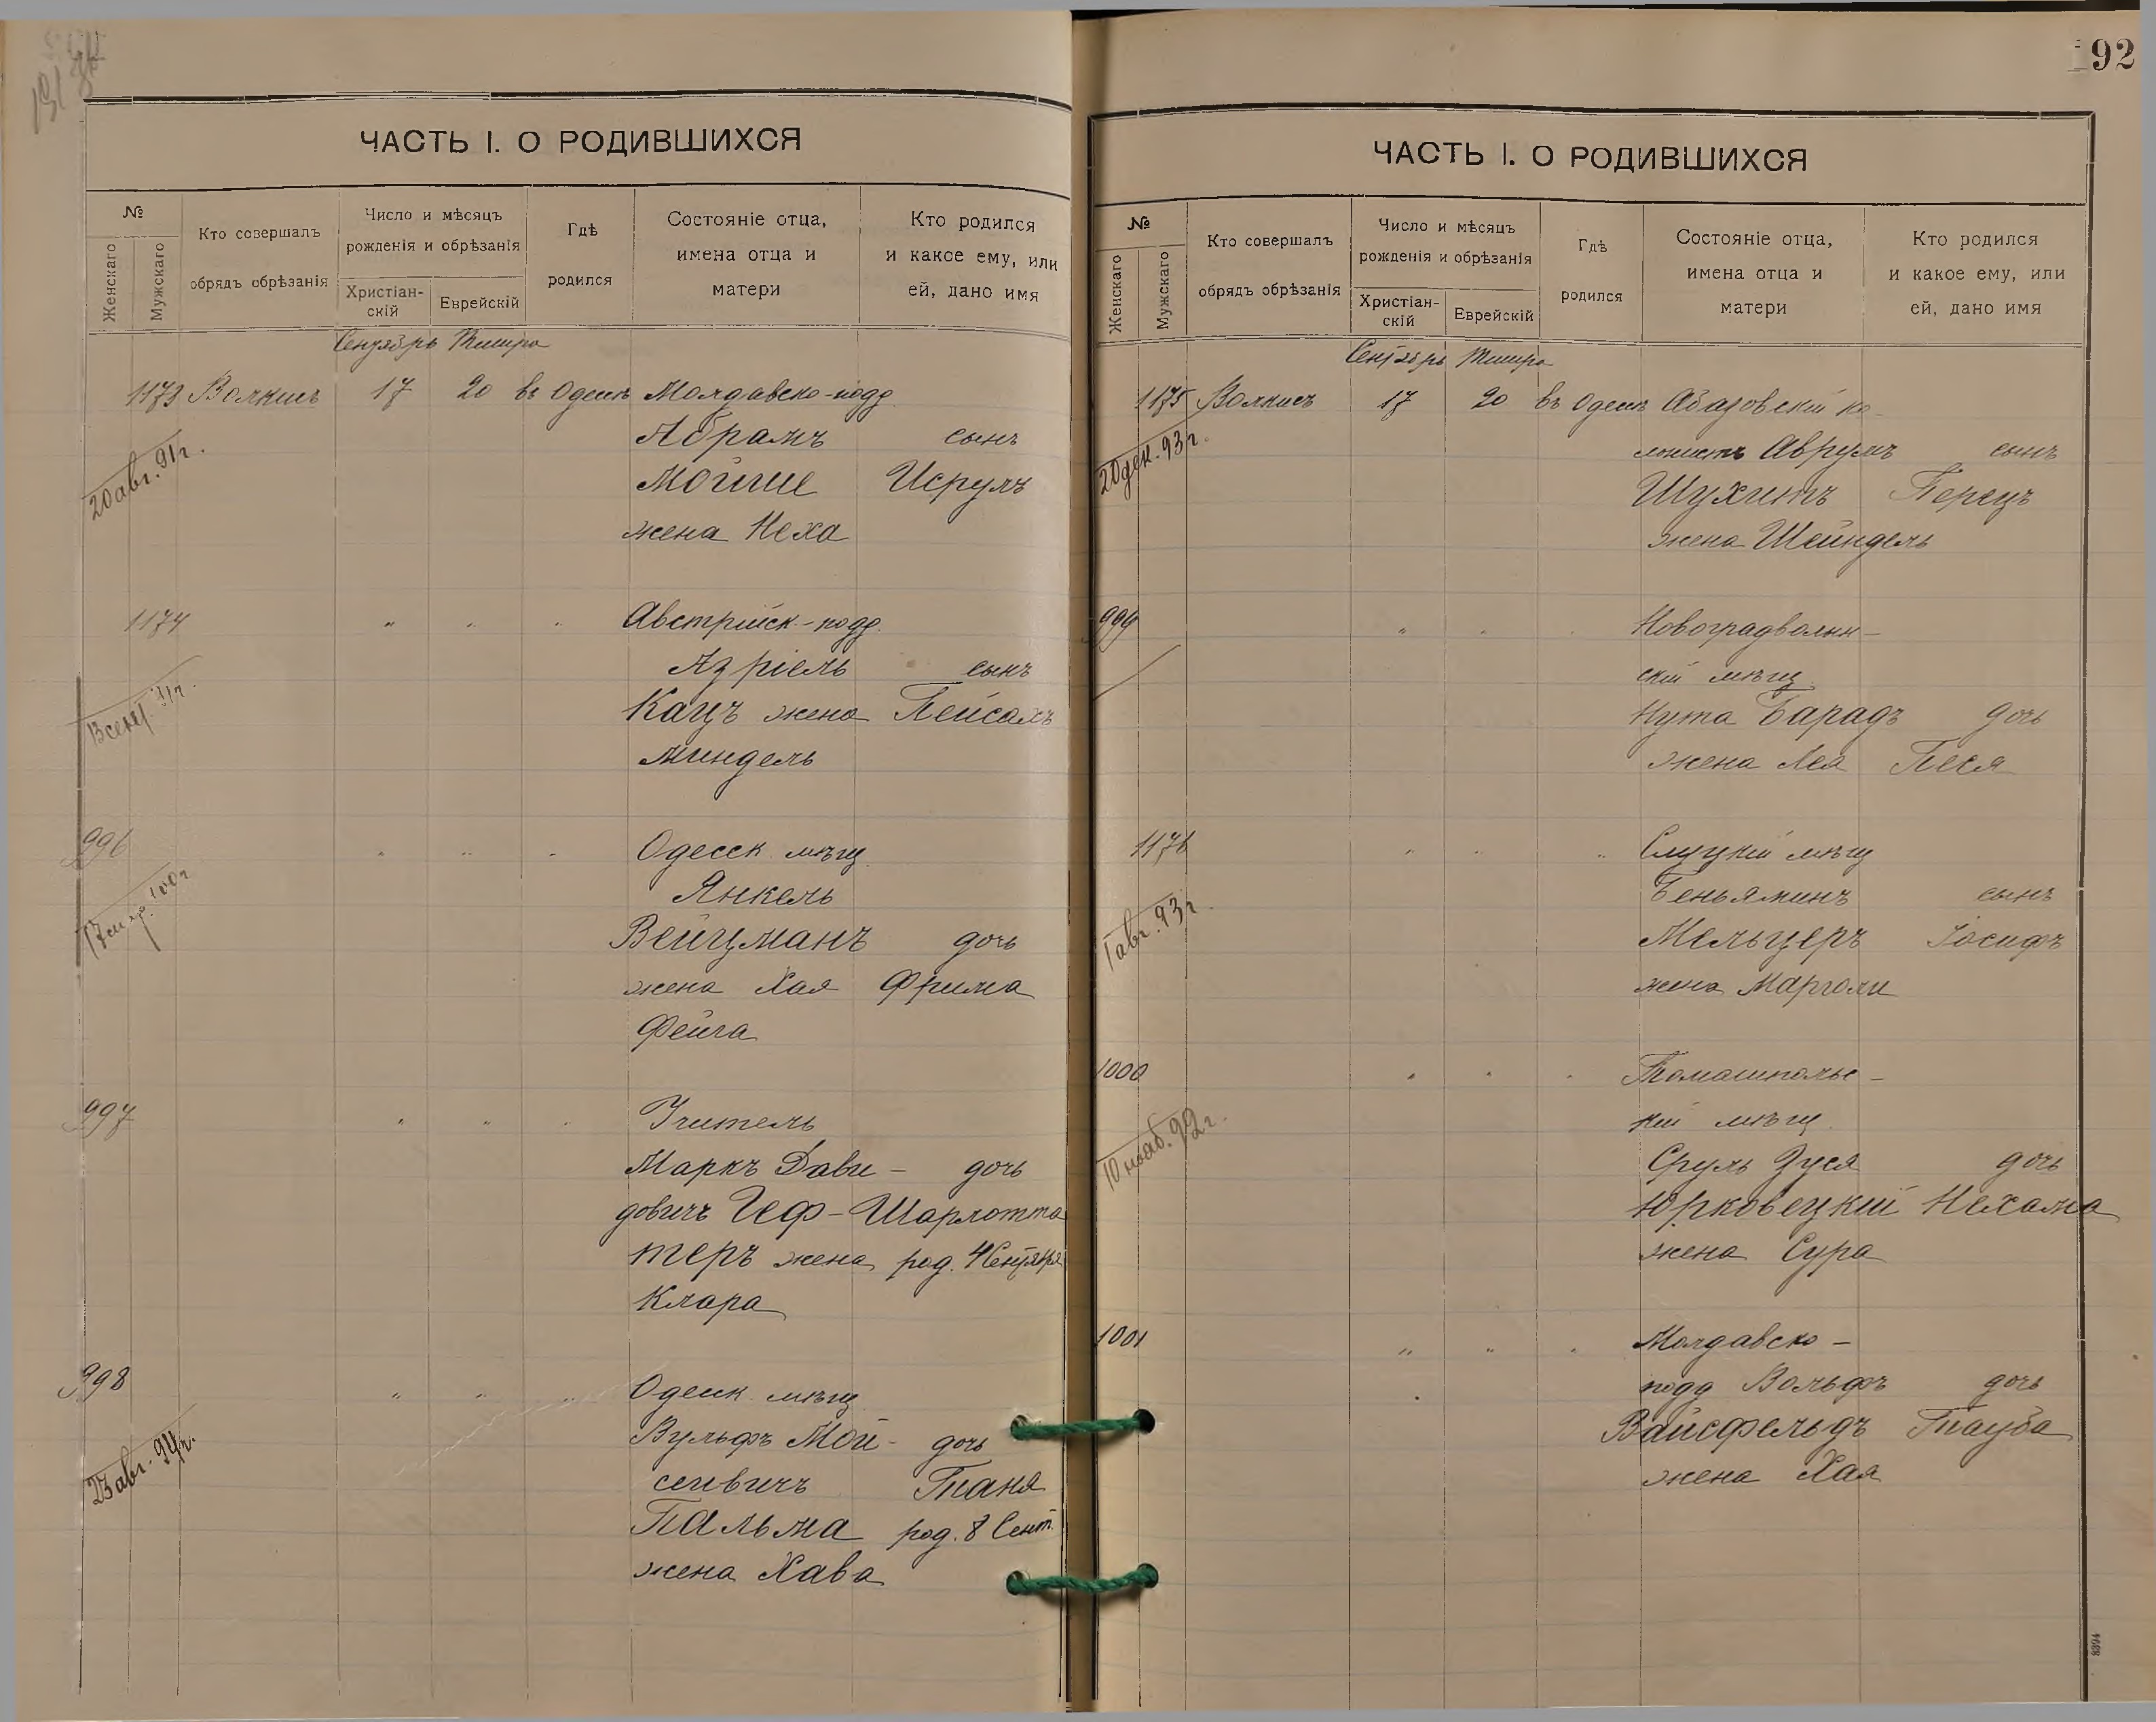 ЧАСТЬ I. О РОДИВШИХСЯ
№
Женскаго
Мужскаго
Кто совершалъ
обрядъ обрѣзанія
Число и мѣсяцъ
рожденія и обрѣзанія
Христіан-
скій
Еврейскій
Гдѣ
родился
Состояніе отца,
имена отца и
матери
Кто родился
и какое ему, или
ей, дано имя
Сентябрь Тишра
1173 Волкисъ 17 20 въ Одессѣ Молдавско-подд.
Абрамъ сынъ
20 авг. 91 г.
Мойше Исрулъ
жена Неха
1174 " " " Австрійск-подд.
Азріель сынъ
Кацъ жена Пейсахъ
Миндель
996 " " " Одесск. мѣщ.
Янкель
Вейцманъ дочь
жена Хая Фрима
Фейга
997 " " " Учитель
Маркъ Дави- дочь
довичъ Геф- Шарлотта
теръ жена род. 4 Сентября
Клара
998 " " " Одесск. мѣщ.
Вульфъ Мой- дочь
сеевичъ Таня
23 авг. 94 г.
Пальма род. 8 Сент.
жена Хава
92
ЧАСТЬ I. О РОДИВШИХСЯ
№
Женскаго
Мужскаго
Кто совершалъ
обрядъ обрѣзанія
Число и мѣсяцъ
рожденія и обрѣзанія
Христіан-
скій
Еврейскій
Гдѣ
родился
Состояніе отца,
имена отца и
матери
Кто родился
и какое ему, или
ей, дано имя
Сентябрь Тишра
1175 Волкисъ 17 20 въ Одессѣ Абазовскій ко-
лонистъ Аврумъ сынъ
20 дек. 93 г.
Шухитъ Перецъ
жена Шейндель
999 " " " Новоградволын-
скій мѣщ.
Нута Барадъ дочь
жена Лея Песя
1176 " " " Слуцкій мѣщ
Беньяминъ сынъ
1 авг. 93 г.
Мельцеръ Іосифъ
жена Марголи
1000 " " " Томашпольс-
кій мѣщ.
10 нояб. 92 г.
Сруль Зуся дочь
Юрковецкій Нехама
жена Сура
1001 " " " Молдавско-
подд Вольфъ дочь
Вайсфельдъ Тауба
жена Хая
8394